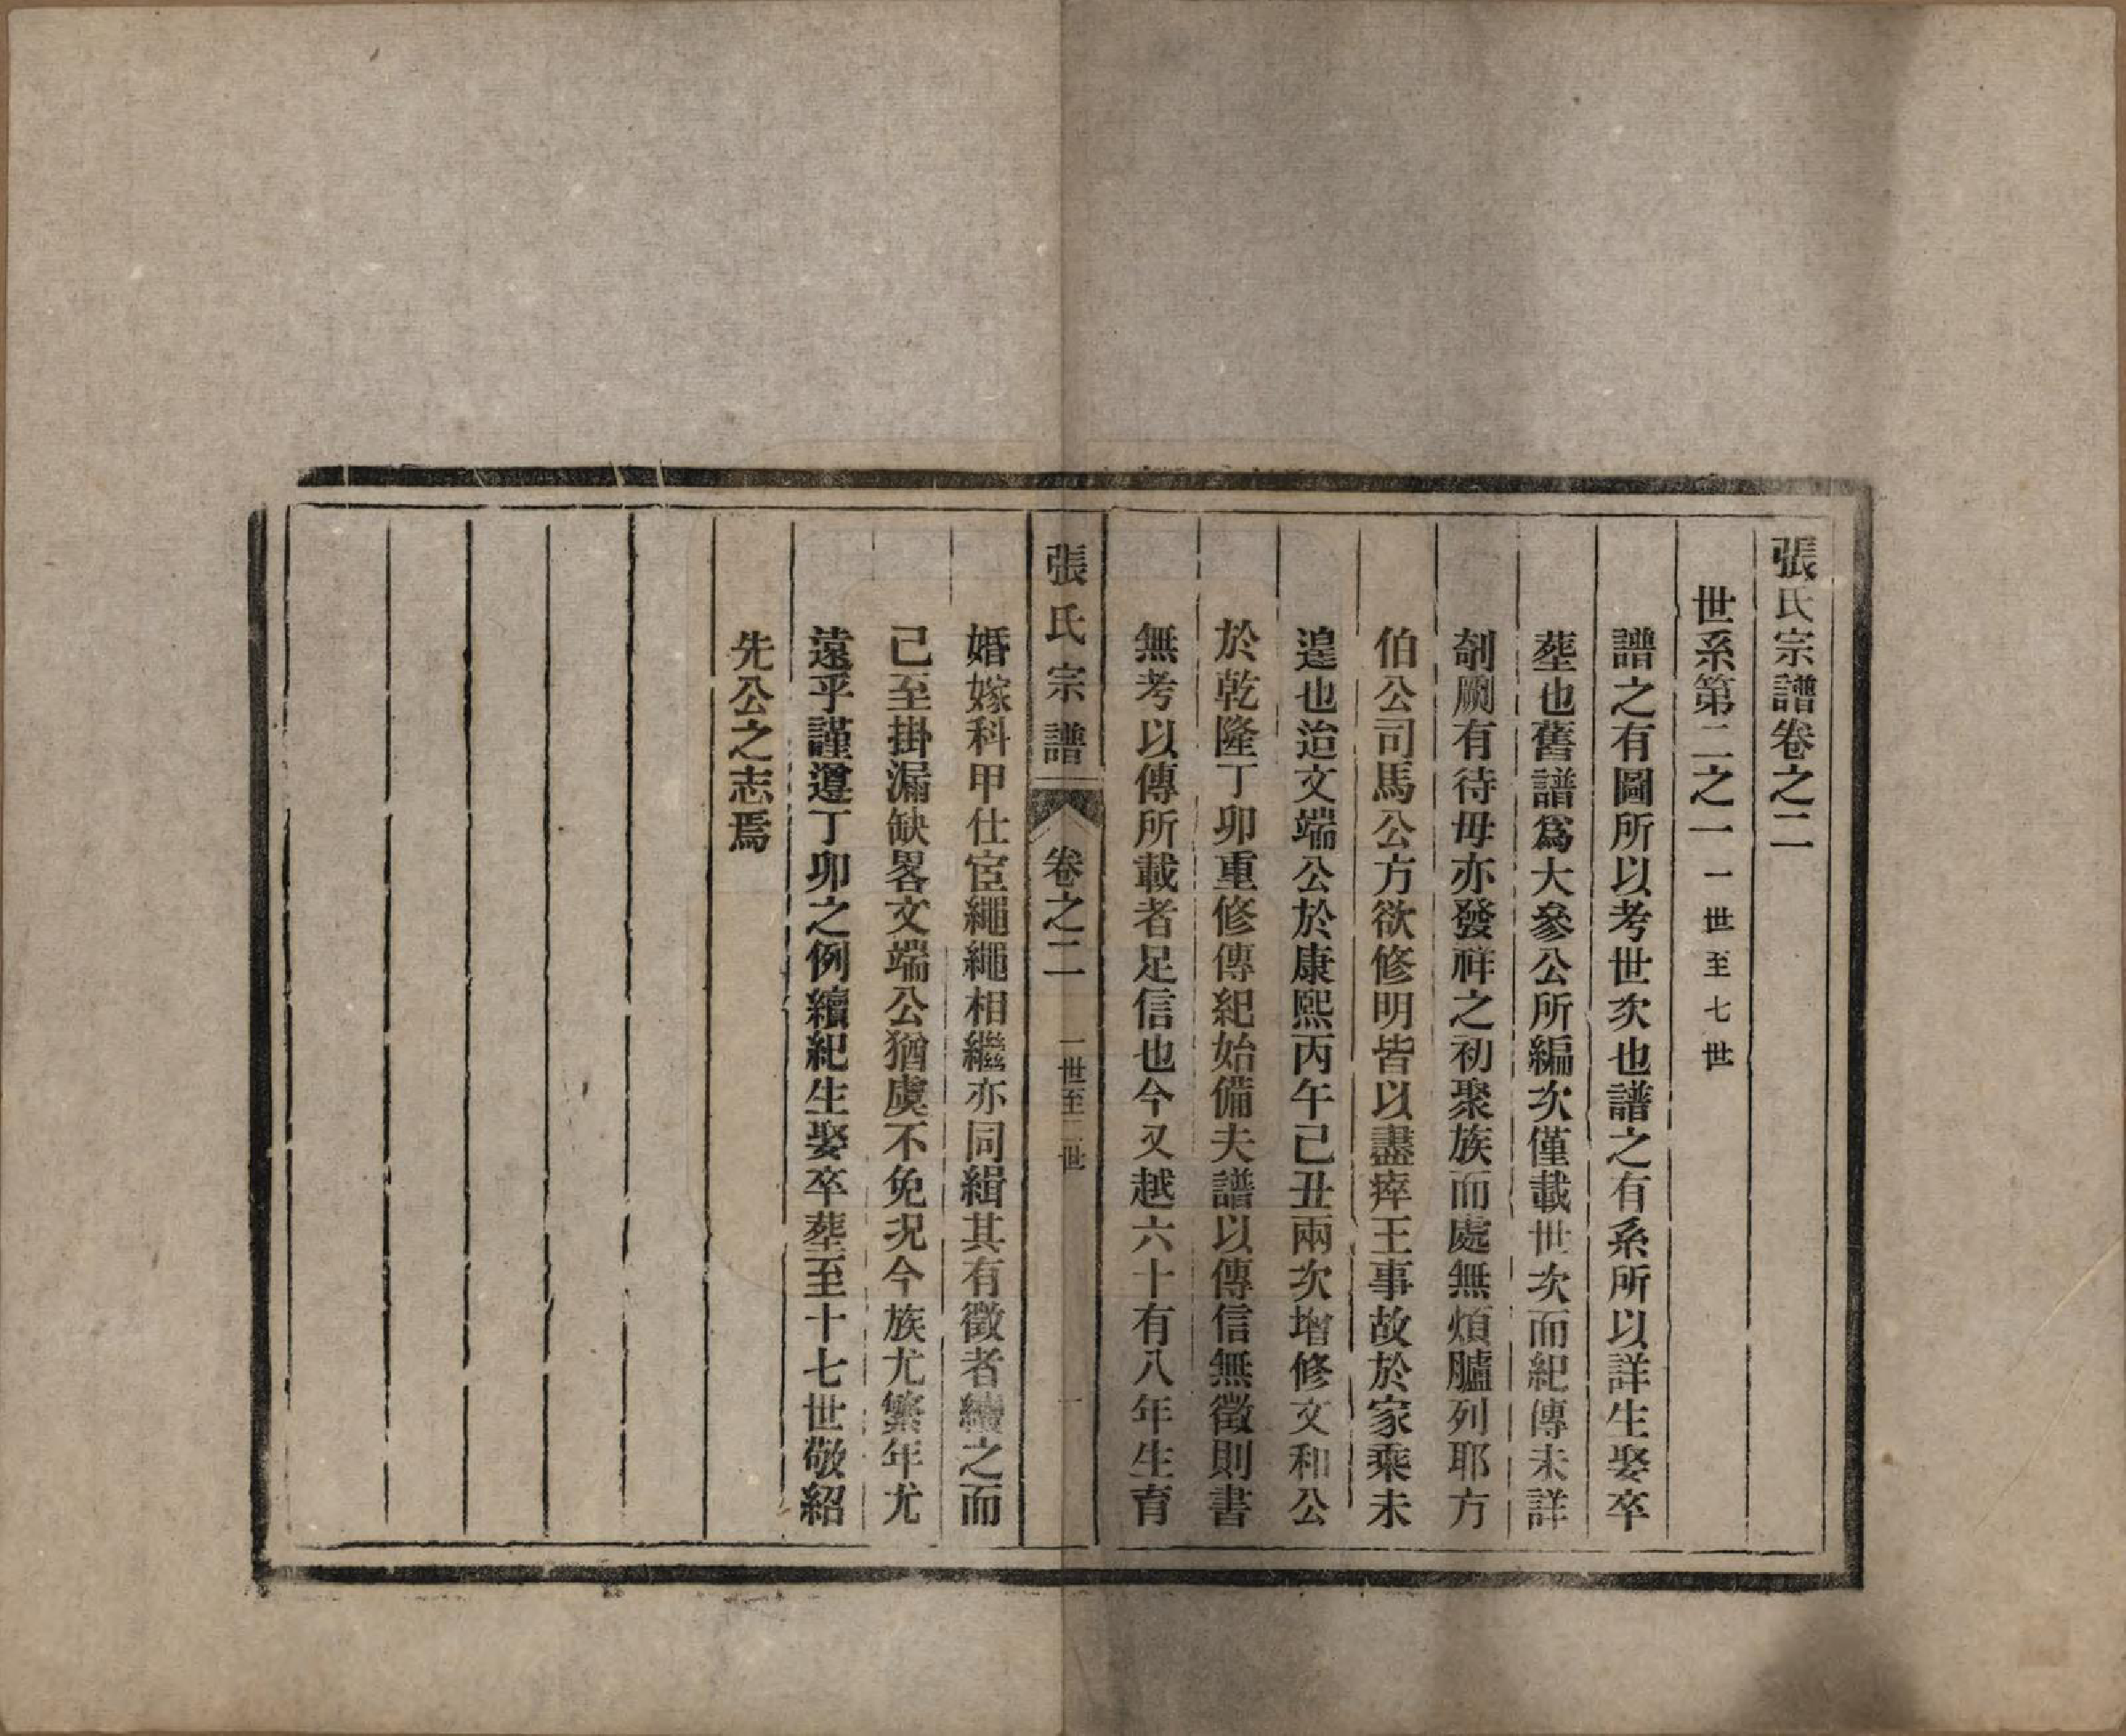 張氏宗譜卷之二
世系第二之一 一世至七世
譜之有圖所以考世次也譜之有系所以詳生娶卒
塟也舊譜爲大參公所編次僅載世次而紀傳未詳
剞劂有待毋亦發祥之初聚族而處無煩臚列耶方
伯公司馬公方欲修明皆以盡瘁王事故於家乘未
遑也迨文端公於康熙丙午己丑兩次增修文和公
於乾隆丁卯重修傳紀始備夫譜以傳信無徵則書
無考以傳所載者足信也今又越六十有八年生育
張氏宗譜 卷之二 一世至二世 一
婚嫁科甲仕宦繩繩相繼亦同緝其有徵者續之而
己至掛漏缺畧文端公猶虞不免况今族尤繁年尤
遠乎謹遵丁卯之例續紀生娶卒塟至十七世敬紹
先公之志焉